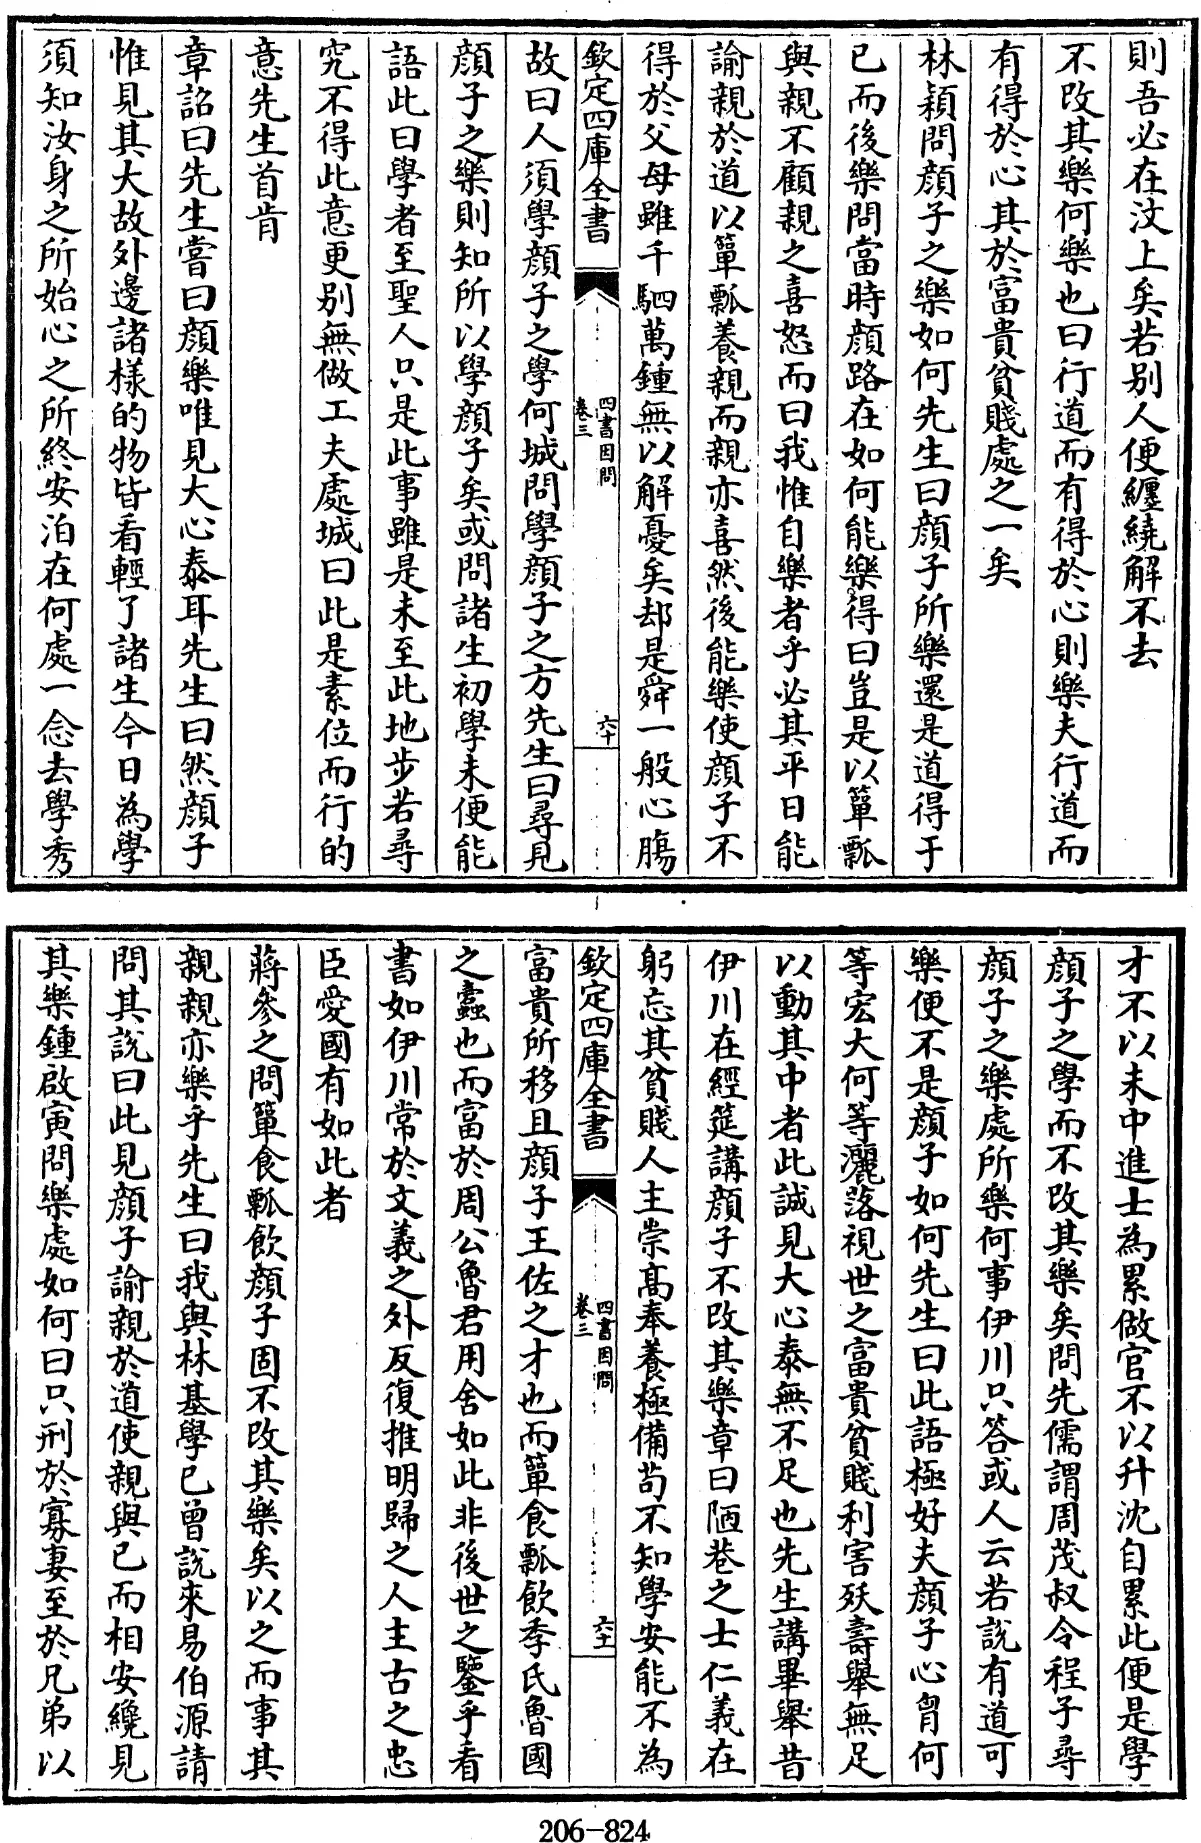 則吾必在汶上矣若别人便纏繞解不去
不改其樂何樂也曰行道而有得於心則樂夫行道而
有得於心其於富貴貧賤處之一矣
林穎問顔子之樂如何先生曰顔子所樂還是道得于
已而後樂問當時顔路在如何能樂得曰豈是以簞瓢
與親不顧親之喜怒而曰我惟自樂者乎必其平日能
諭親於道以簞瓢養親而親亦喜然後能樂使顔子不
得於父母雖千駟萬鍾無以解憂矣却是舜一般心腸
欽定四庫全書
四書因問
卷三
六十
故曰人須學顔子之學何城問學顔子之方先生曰尋見
顔子之樂則知所以學顔子矣或問諸生初學未便能
語此曰學者至聖人只是此事雖是未至此地步若尋
究不得此意更别無做工夫處城曰此是素位而行的
意先生首肯
章詔曰先生嘗曰顔樂唯見大心泰耳先生曰然顔子
惟見其大故外邊諸様的物皆看輕了諸生今日為學
須知汝身之所始心之所終安泊在何處一念去學秀
才不以未中進士為累做官不以升沈自累此便是學
顔子之學而不改其樂矣問先儒謂周茂叔令程子尋
顔子之樂處所樂何事伊川只答或人云若説有道可
樂便不是顔子如何先生曰此語極好夫顔子心胷何
等宏大何等灑落視世之富貴貧賤利害殀壽舉無足
以動其中者此誠見大心泰無不足也先生講畢舉昔
伊川在經筵講顔子不改其樂章曰陋巷之士仁義在
躬忘其貧賤人主崇髙奉養極備茍不知學安能不為
欽定四庫全書
四書因問
卷三
六十一
富貴所移且顔子王佐之才也而簞食瓢飲季氏魯國
之蠧也而富於周公魯君用舍如此非後世之鑒乎看
書如伊川常於文義之外反復推明歸之人主古之忠
臣愛國有如此者
蔣參之問簞食瓢飲顔子固不改其樂矣以之而事其
親親亦樂乎先生曰我與林基學已曾説來易伯源請
問其説曰此見顔子諭親於道使親與已而相安纔見
其樂鍾啟寅問樂處如何曰只刑於寡妻至於兄弟以
206-824